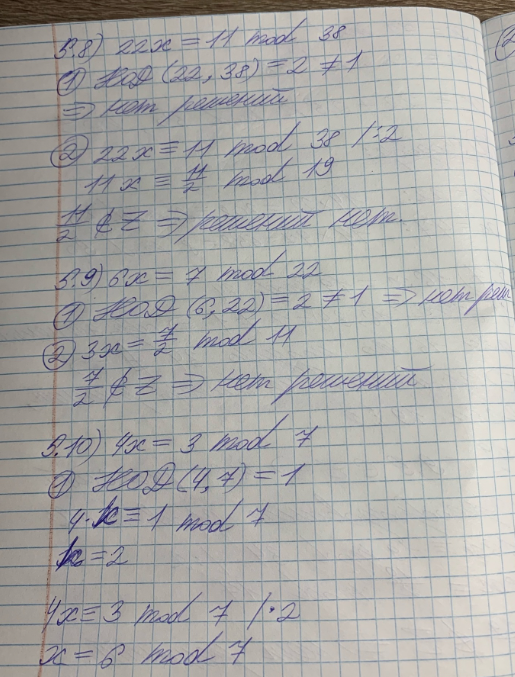 5.8) 22x ≡ 11 mod 38
① НОД (22, 38) = 2 ≠ 1
⇒ нет решений
② 22x ≡ 11 mod 38 /:2
11x ≡ 11/2 mod 19
11/2 ∉ Z ⇒ решений нет.
5.9) 6x ≡ 7 mod 22
① НОД (6, 22) = 2 ≠ 1 ⇒ нет реш
② 3x ≡ 7/2 mod 11
7/2 ∉ Z ⇒ нет решений
5.10) 4x ≡ 3 mod 7
① НОД (4, 7) = 1
4·k ≡ 1 mod 7
k = 2
4x ≡ 3 mod 7 /·2
x ≡ 6 mod 7